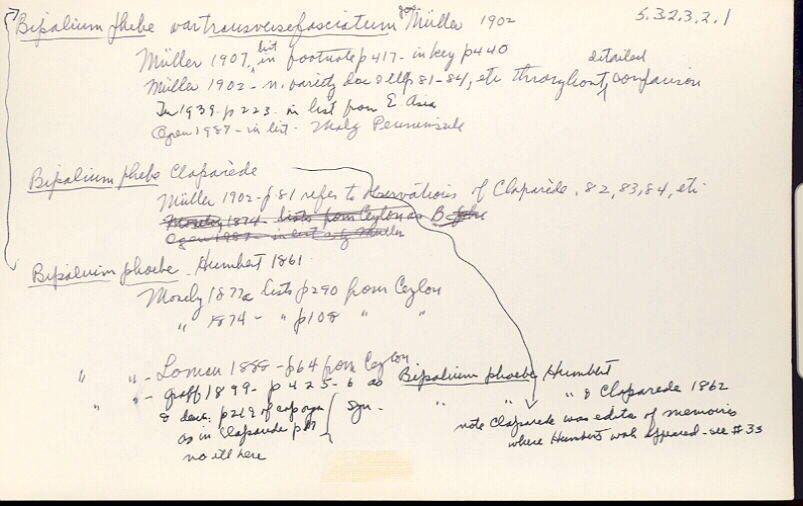 Bipalium phebe var transversefasciatum Müller 1902
5.3.2.3.2.1
Müller 1907, list in footnote p 417 - in key p 440
Müller 1902 - n. variety desc & ill p 81-84, etc throughout, detailed comparison
1939 p 223 in list from E. Asia
Ogren 1987 - in list - Malay Peninsula
Bipalium phebe Claparède
Müller 1902 - p 81 refers to observations of Claparède, 82, 83, 84, etc.
Mosely 1874 - lists from Ceylon as B.
Ogren 1987 - in list as by Muller
Bipalium phoebe - Humbert 1861.
Mosely 1877a lists p 290 from Ceylon
" 1874 - " p 108 " "
" " - Loman 1888 - p 64 from Ceylon
" " - Graff 1899 - p 425-6 as Bipalium phoebe Humbert
& desc. p 219 of cop organ
as in Claparede p
no ill here
syn.
" " " & Claparede 1862
note Claparede was editor of memoirs
where Humbert's work appeared - see # 33